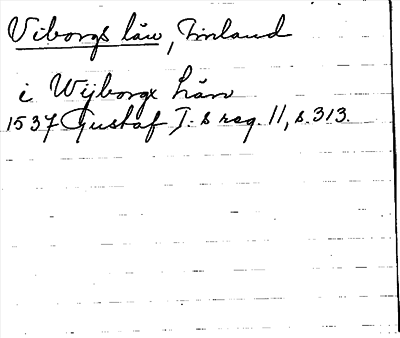 Viborgs län, Finland
i Wijborgx hän
1537 Gustaf I:s reg. 11, s. 313.